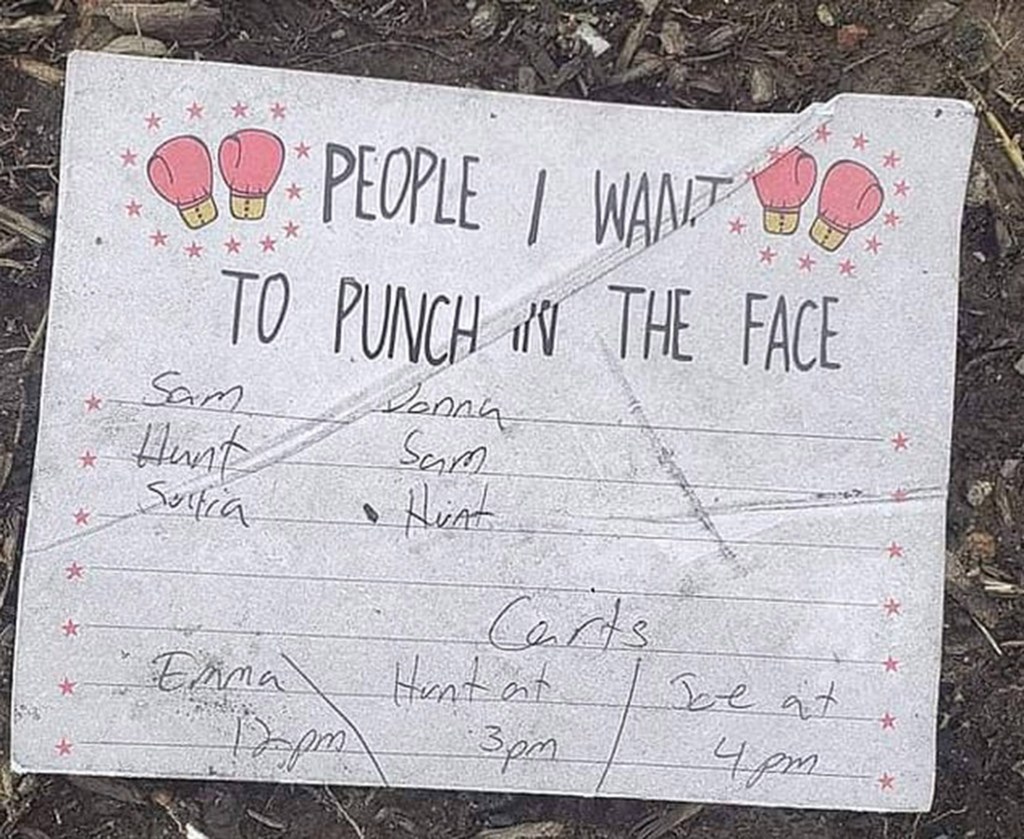 PEOPLE I WANT
TO PUNCH IN THE FACE
Sam Donna
Hunt Sam
Hunt
Carts
Emma Hunt at Joe at
12pm 3pm 4pm